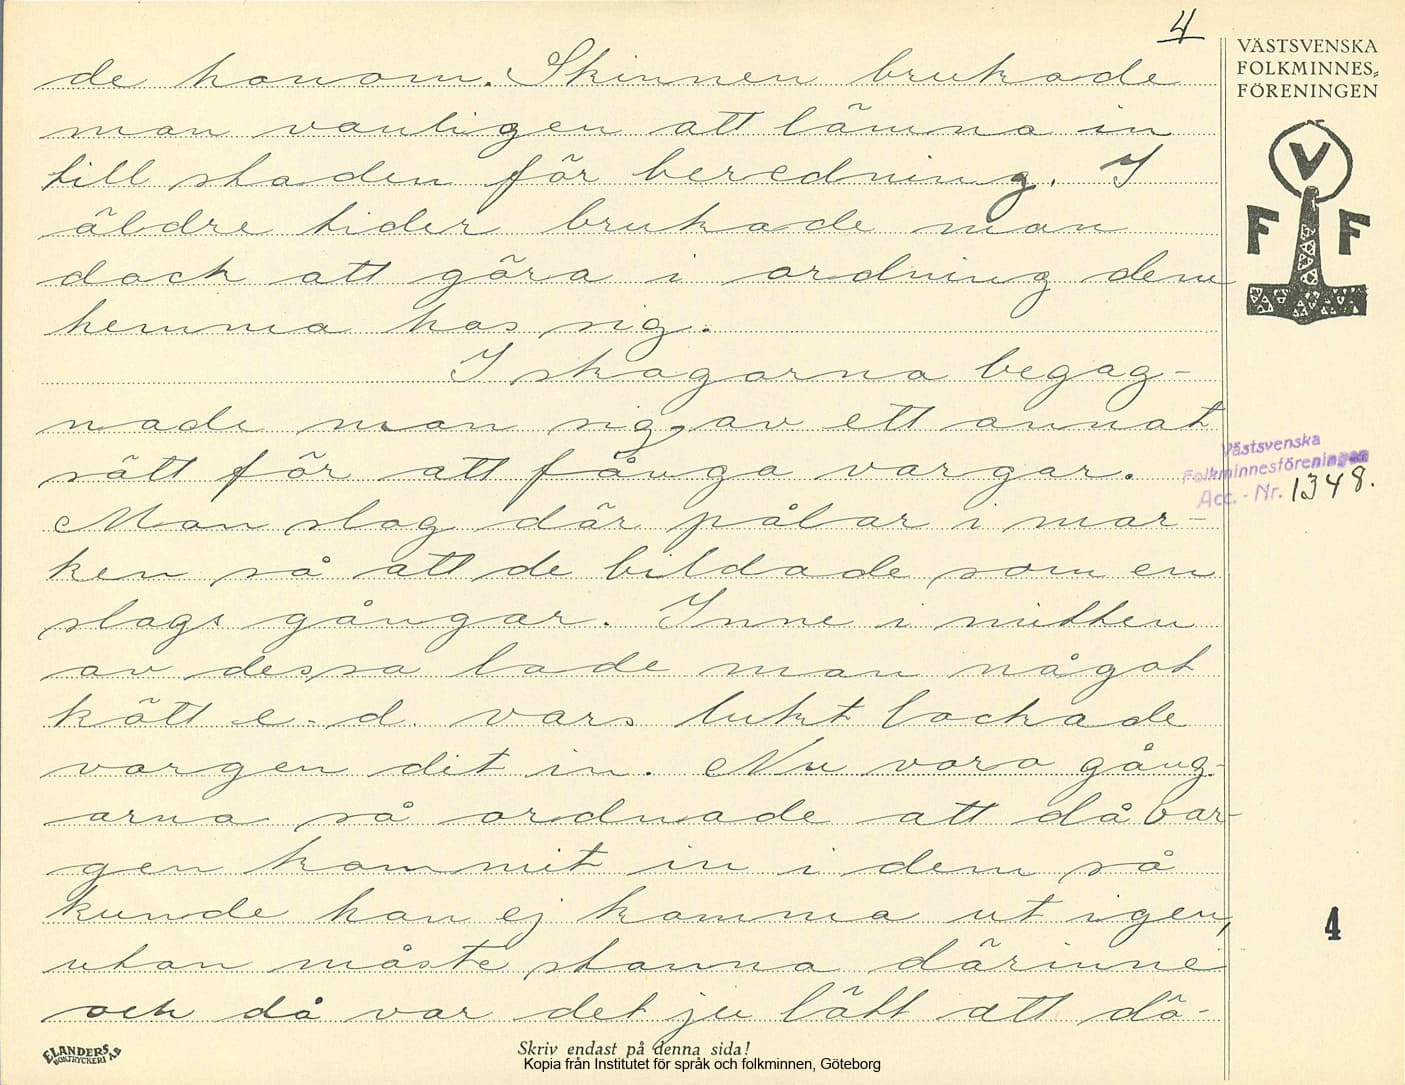 4
VÄSTSVENSKA
FOLKMINNES-
FÖRENINGEN
V
F F
de honom. Skinnen brukade
man vanligen att lämna in
till staden för beredning. I
äldre tider brukade man
dock att göra i ordning dem
hemma hos sig.
I skogarna begag-
nade man sig av ett annat
sätt för att fånga vargar.
Man slog där pålar i mar-
ken så att de bildade som en
slags gångar. Inne i mitten
av dessa lade man något
kött e. d. vars lukt lockade
vargen dit in. Nu voro gång-
arna så ordnade att då var-
gen kommit in i dem så
kunde han ej komma ut igen,
utan måste stanna därinne
och då var det ju lätt att dö-
Västsvenska
Folkminnesföreningen
Acc. - Nr. 1348.
4
ELANDERS
BOKTRYCKERI AB
Skriv endast på denna sida!
Kopia från Institutet för språk och folkminnen, Göteborg